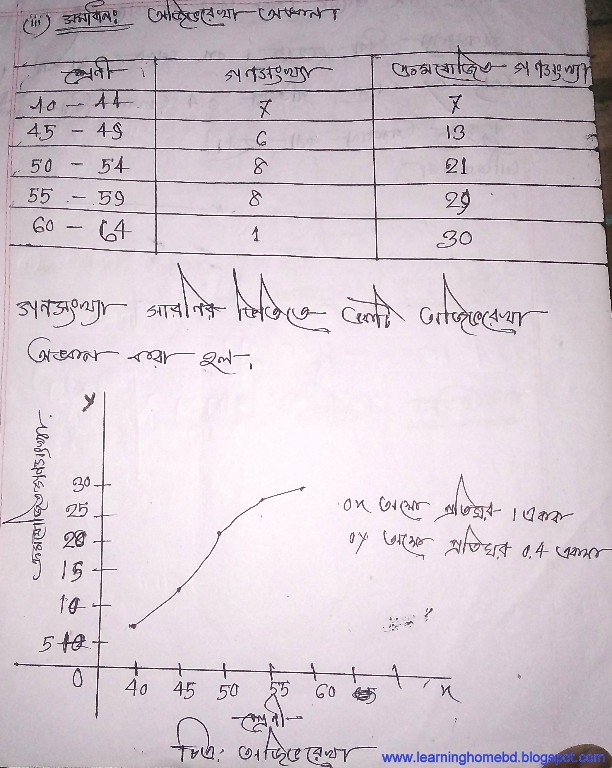 (iii) সমাধান: অজিভরেখা অঙ্কন।
শ্রেণী গণসংখ্যা ক্রমযোজিত গণসংখ্যা
40 – 44 7 7
45 – 49 6 13
50 – 54 8 21
55 – 59 8 29
60 – 64 1 30
গণসংখ্যা সারনির ভিত্তিতে একটি অজিভরেখা
অঙ্কন করা হল।
y
ক্রমযোজিত গণসংখ্যা
30
25
20
15
10
5
0 40 45 50 55 60 65 x
শ্রেণী
ox অক্ষে প্রতিঘর 1 একক
oy অক্ষে প্রতিঘর 0.4 একক
চিত্র: অজিভরেখা
www.learninghomebd.blogspot.com